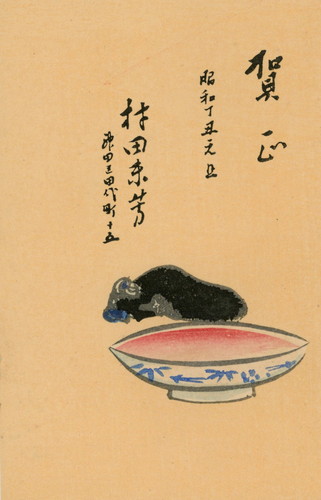 賀正
昭和丁丑元旦
村田東芳
神田三田代町十五